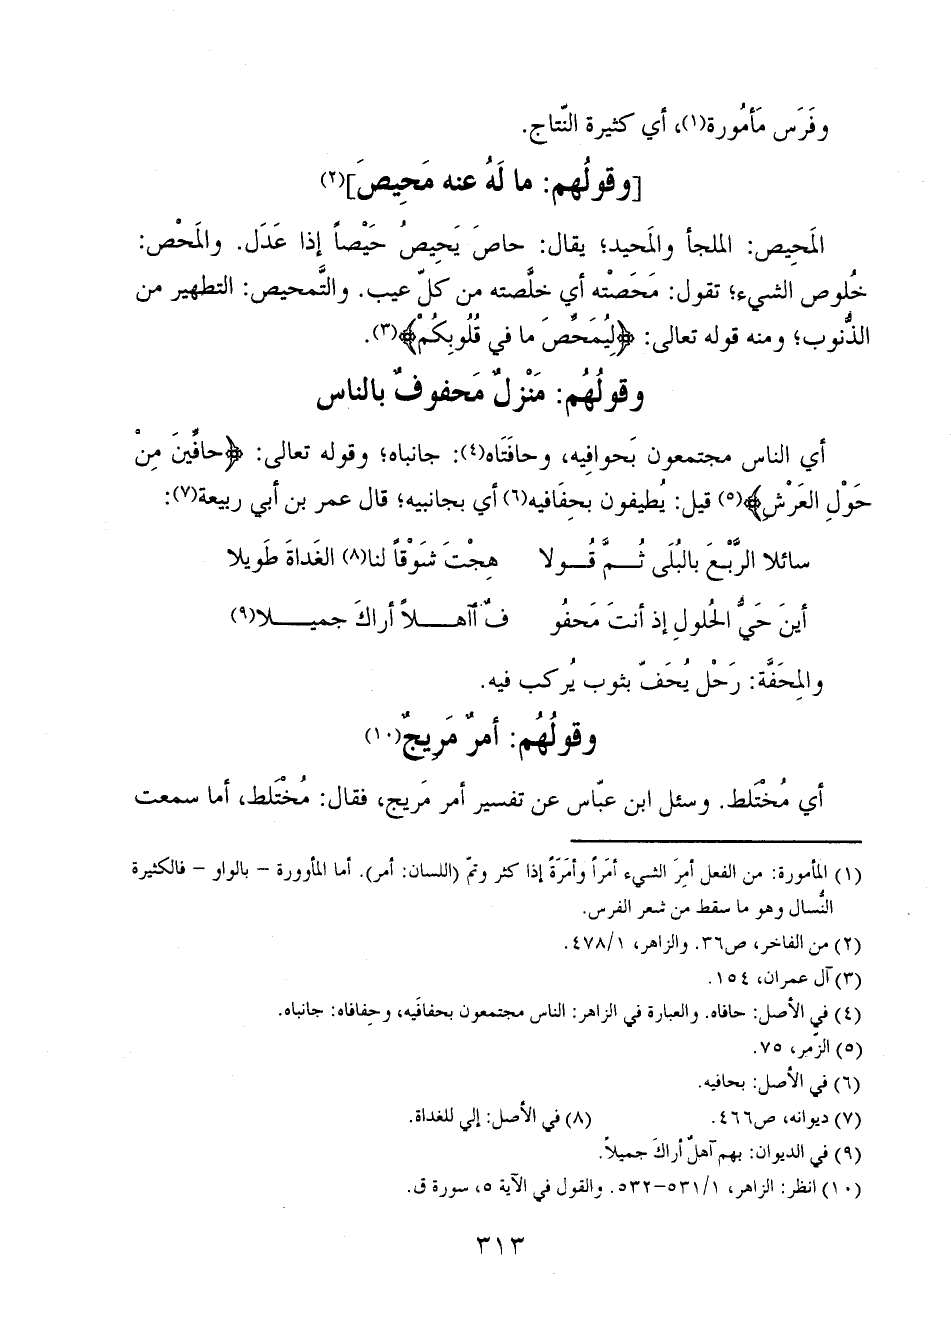 وفَرَس مَأمُورة(١)، أي كثيرة النّتاج.
[وقولُهم: ما لَهُ عنه مَحِيصَ](٢)
المَحِيص: الملجأ والمَحيد؛ يقال: حاصَ يَحِيصُ حَيْصاً إذا عَدَل. والمَحْص:
خُلوص الشيء؛ تقول: مَحَصْته أي خلَّصته من كلّ عيب. والتَّمحيص: التطهير من
الذُّنوب؛ ومنه قوله تعالى: ﴿لِيُمَحِّصَ ما في قُلُوبِكُمْ﴾(٣).
وقولُهُم: مَنْزلٌ مَحفوفٌ بالناس
أي الناس مجتمعون بَحوافِيه، وحافَتَاه(٤): جانباه؛ وقوله تعالى: ﴿حافِّينَ مِنْ
حَوْلِ العَرْشِ﴾(٥) قيل: يُطيفون بحِفَافيه(٦) أي بجانبيه؛ قال عمر بن أبي ربيعة(٧):
سائلا الرَّبْعَ بالبُلَى ثُـــمَّ قُــولا هِجْتَ شَوْقاً لنا(٨) الغَداةَ طَويلا
أينَ حَيُّ الحُلولِ إذ أنتَ مَحفُو فٌ آآهـــلاً أراكَ جميـــــلا(٩)
والمِحَفَّة: رَحْل يُحَفّ بثوب يُركب فيه.
وقولُهُم: أمرٌ مَرِيجٌ(١٠)
أي مُخْتَلط. وسئل ابن عبّاس عن تفسير أمر مَريج، فقال: مُخْتَلط، أما سمعت
(١) المأمورة: من الفعل أمِرَ الشيء أمَراً وأمَرَةً إذا كثر وتمّ (اللسان: أمر). أما المأوورة – بالواو – فالكثيرة
النُّسال وهو ما سقط من شعر الفرس.
(٢) من الفاخر، ص٣٦. والزاهر، ٤٧٨/١.
(٣) آل عمران، ١٥٤.
(٤) في الأصل: حافاه. والعبارة في الزاهر: الناس مجتمعون بحفافَيه، وحِفافاه: جانباه.
(٥) الزّمر، ٧٥.
(٦) في الأصل: بحافيه.
(٧) ديوانه، ص٤٦٦. (٨) في الأصل: إلي للغداة.
(٩) في الديوان: بهم آهلٌ أراكَ جميلاً.
(١٠) انظر: الزاهر، ٥٣١/١–٥٣٢. والقول في الآية ٥، سورة ق.
٣١٣